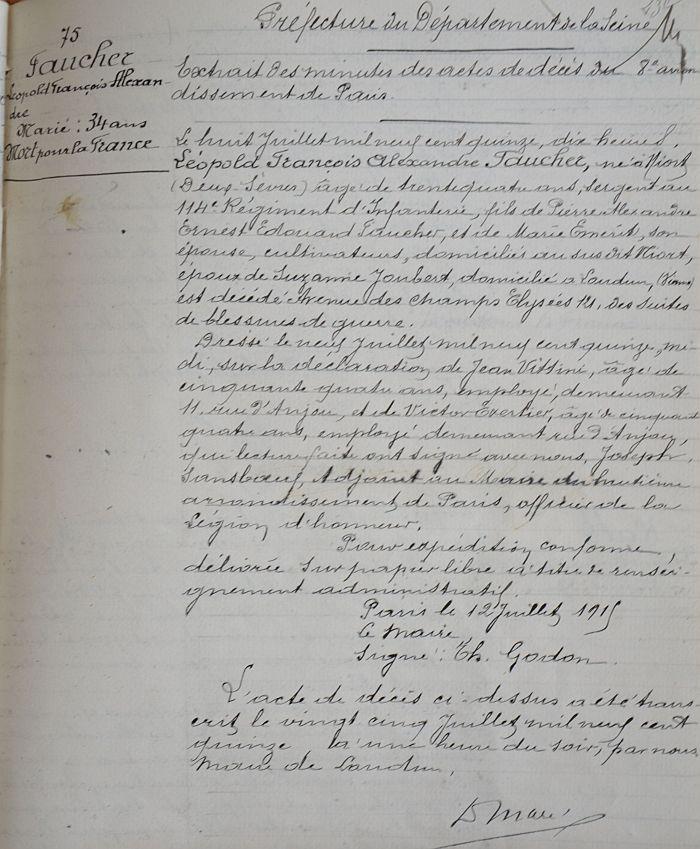 Préfecture du Département de la Seine
75
Faucher
Léopold François Alexan
dre
Marié : 34 ans
Mort pour la France
Extrait des minutes des actes de décès du 8e arron
dissement de Paris.
Le huit Juillet mil neuf cent quinze, dix heures,
Léopold François Alexandre Faucher, né à Niort
(Deux-Sèvres) âgé de trente quatre ans, sergent au
114e Régiment d'Infanterie, fils de Pierre Alexandre
Ernest Edouard Faucher, et de Marie Emerit, son
épouse, cultivateurs, domiciliés au susdit Niort,
époux de Suzanne Joubert, domicilié à Loudun, (Vienne)
est décédé Avenue des Champs Elysées 121, des suites
de blessures de guerre.
Dressé le neuf Juillet mil neuf cent quinze, mi-
di, sur la déclaration de Jean Vittini, âgé de
cinquante quatre ans, employé, demeurant
11, rue d'Anjou, et de Victor Exertier, âgé de cinquante
quatre ans, employé demeurant rue d'Anjou,
qui lecture faite ont signé avec nous, Joseph
Sansboeuf, Adjoint au Maire du huitième
arrondissement de Paris, officier de la
Légion d'honneur.
Pour expédition conforme,
délivrée sur papier libre à titre de rensei-
gnement administratif.
Paris le 12 Juillet 1915
Le Maire,
Signé : Th. Godon.
L'acte de décès ci-dessus a été trans-
crit le vingt cinq Juillet mil neuf cent
quinze à une heure du soir, par nous
Maire de Loudun.